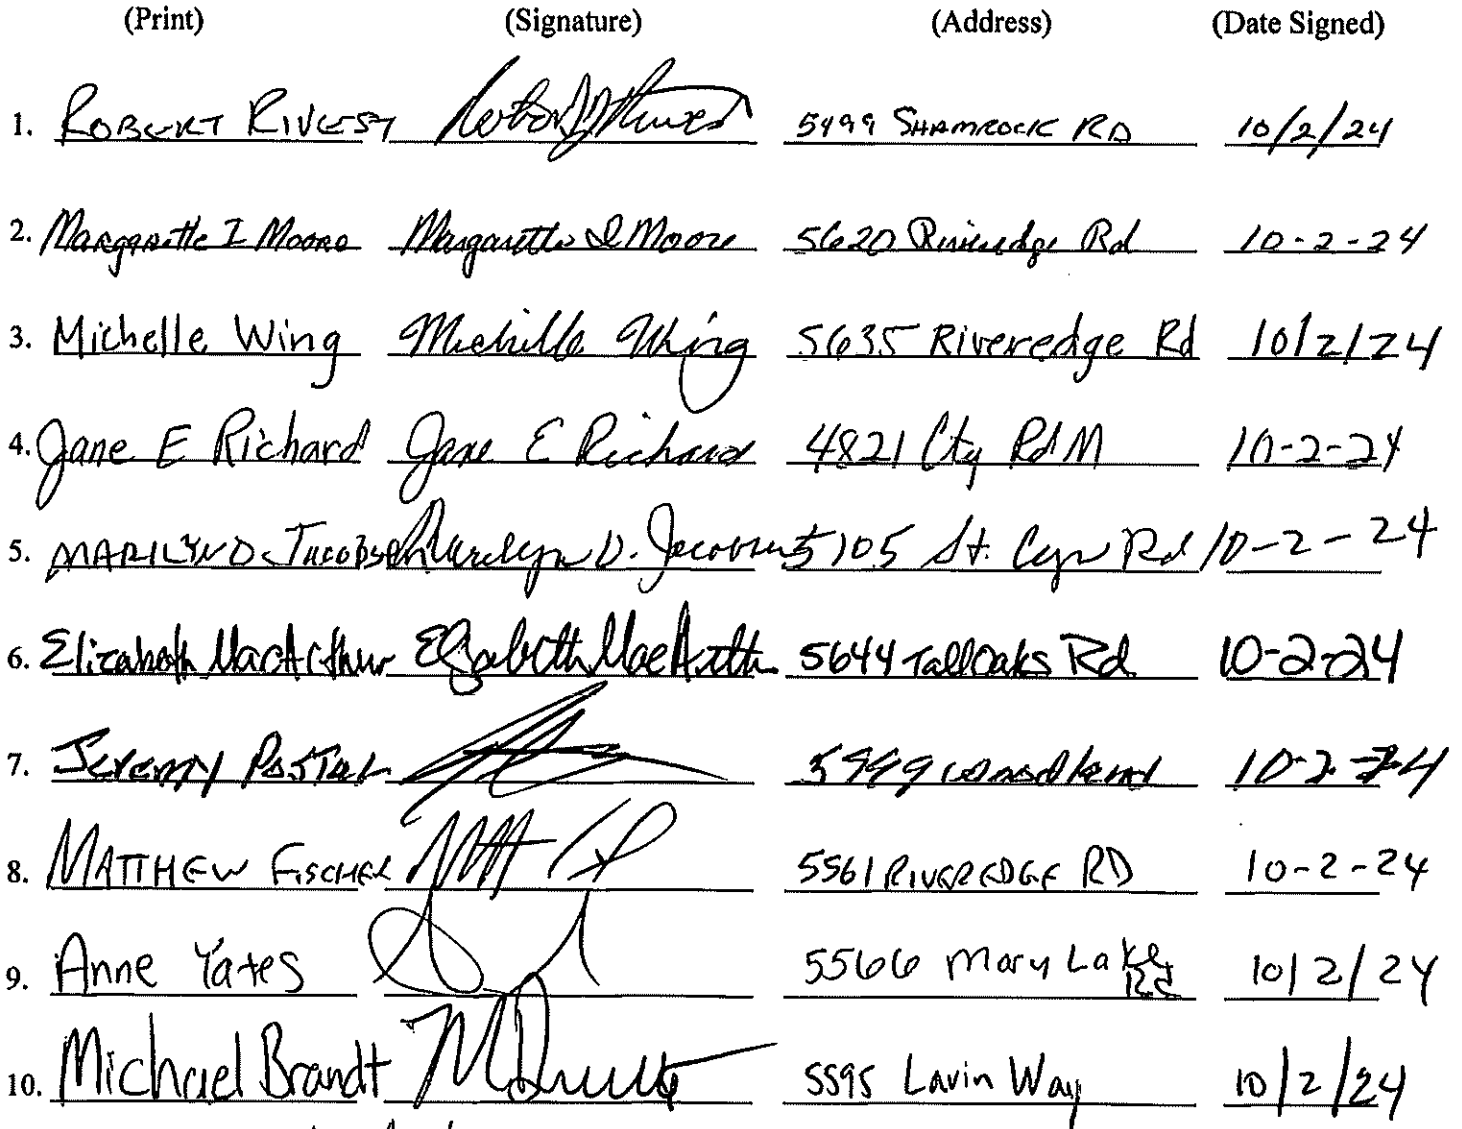 (Print) (Signature) (Address) (Date Signed)
1. ROBERT RIVEST 5499 SHAMROCK RD 10/2/24
2. Margarette I Moore Margarette I Moore 5620 Riveredge Rd 10-2-24
3. Michelle Wing Michelle Wing 5635 Riveredge Rd 10/2/24
4. Jane E Richard Jane E Richard 4821 Cty Rd M 10-2-24
5. MARILYN D. JACOBSEN Marilyn D. Jacobsen 5105 St. Cyr Rd 10-2-24
6. Elizabeth MacArthur Elizabeth MacArthur 5644 Tall Oaks Rd 10-2-24
7. Jeremy 10-2-24
8. MATTHEW FISCHER 5561 RIVEREDGE RD 10-2-24
9. Anne Yates 5566 Mary Lake Rd 10/2/24
10. Michael Brandt 5595 Lavin Way 10/2/24